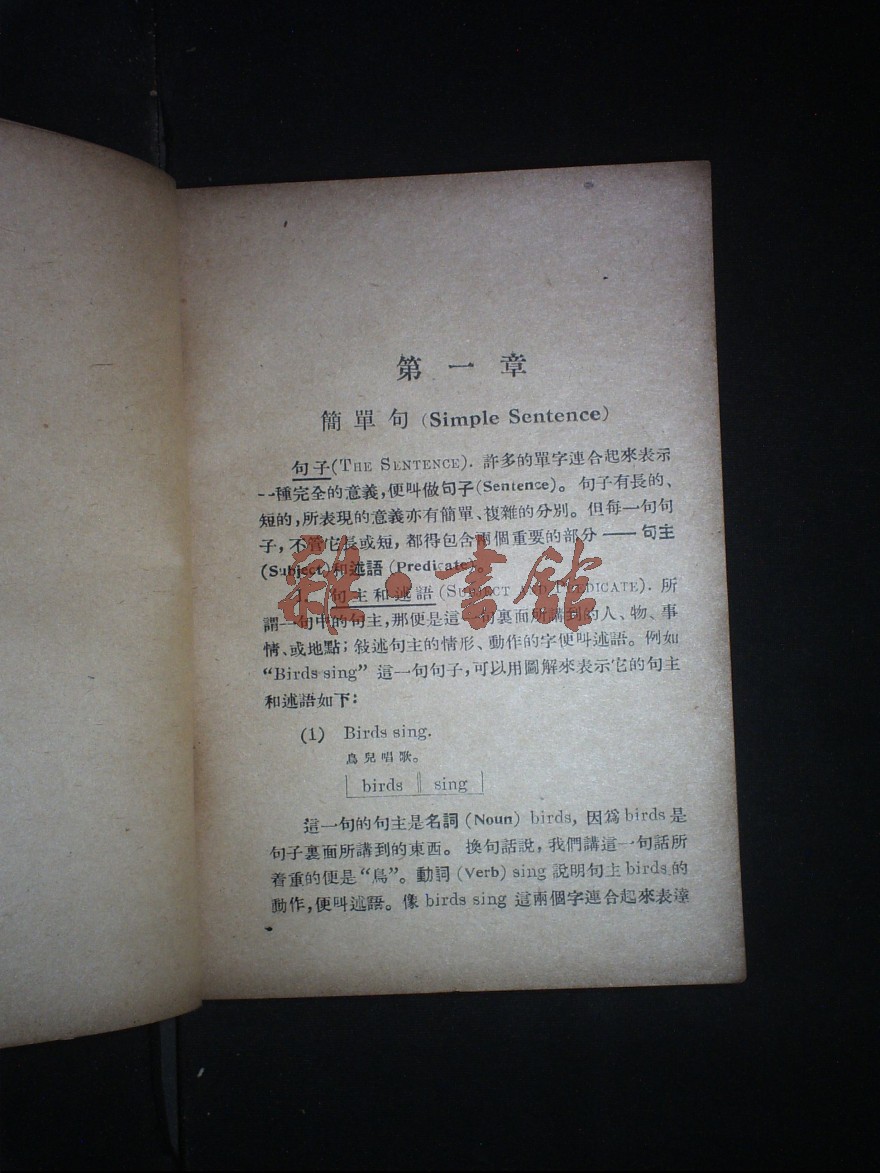 第一章
簡單句 (Simple Sentence)
句子(THE SENTENCE). 許多的單字連合起來表示
一種完全的意義,便叫做句子(Sentence)。句子有長的、
短的,所表現的意義亦有簡單、複雜的分別。但每一句句
子,不管它長或短,都得包含兩個重要的部分——句主
(Subject)和述語(Predicate)。
1. 句主和述語(SUBJECT AND PREDICATE). 所
謂一句中的句主,那便是這一句裏面所講到的人、物、事
情、或地點;敍述句主的情形、動作的字便叫述語。例如
“Birds sing” 這一句句子,可以用圖解來表示它的句主
和述語如下:
(1) Birds sing.
鳥兒唱歌。
birds sing
這一句的句主是名詞 (Noun) birds, 因爲 birds 是
句子裏面所講到的東西。換句話說,我們講這一句話所
着重的便是“鳥”。動詞 (Verb) sing 說明句主 birds 的
動作,便叫述語。像 birds sing 這兩個字連合起來表達
雜·書館